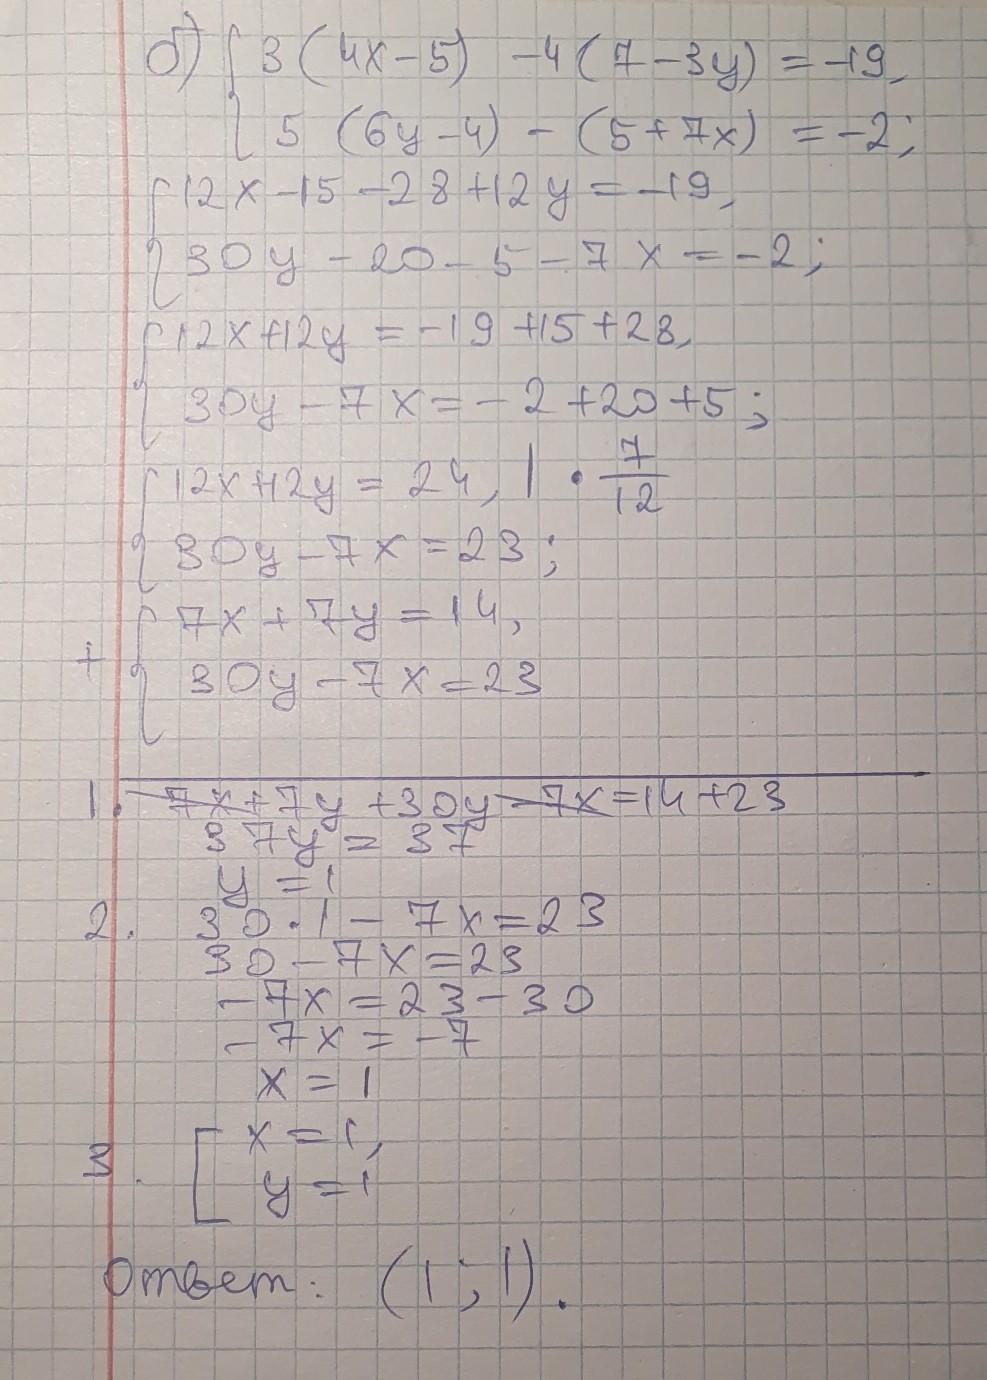 б) { 3 (4x-5) -4 (7-3y) = -19,
5 (6y-4) - (5+7x) = -2;
{ 12x -15 -28 +12y = -19,
30y - 20 - 5 - 7x = -2;
{ 12x+12y = -19 +15 +28,
30y - 7x = -2 +20 +5;
{ 12x+12y = 24, | · 7/12
30y - 7x = 23;
+ { 7x + 7y = 14,
30y - 7x = 23
1. 7x+7y +30y -7x = 14 +23
37y = 37
y = 1
2. 30 · 1 - 7x = 23
30 - 7x = 23
-7x = 23 - 30
-7x = -7
x = 1
3. [ x = 1,
y = 1
Ответ: (1; 1).